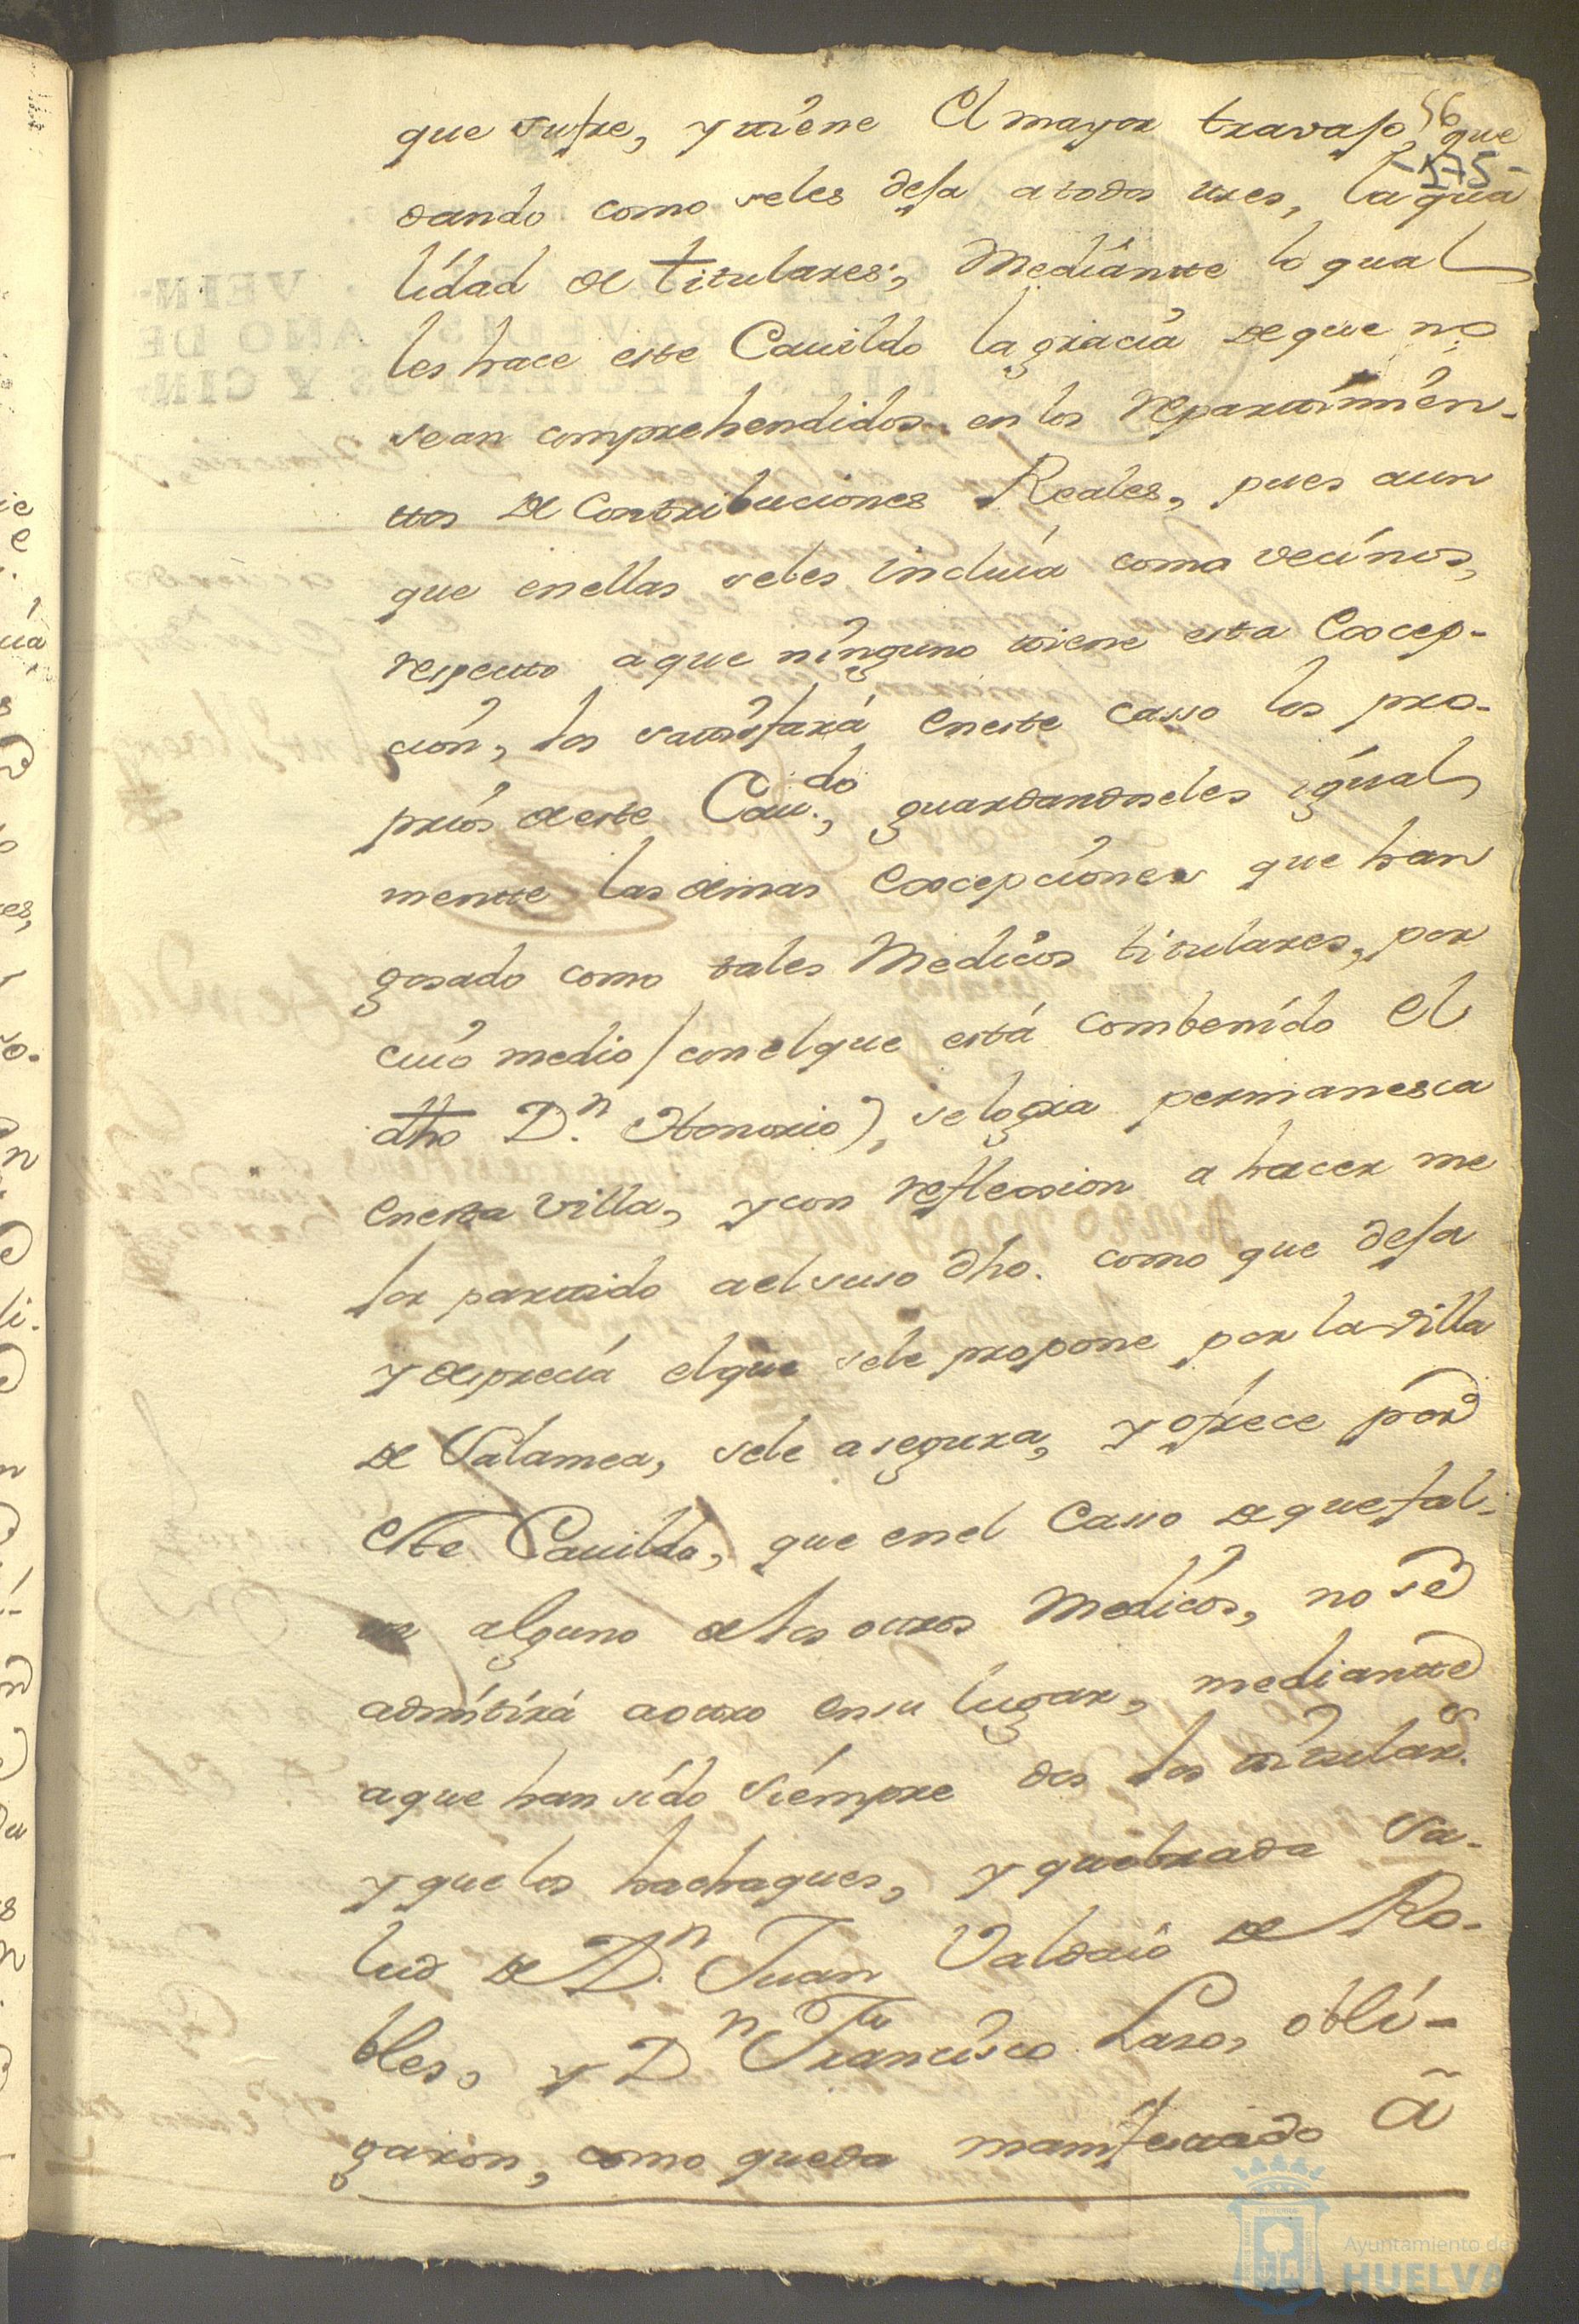 56
que sufre, y tiene El mayor travajo, que
-175-
dando como seles deja atodos tres, la qua
lidad de titulares; Mediantte lo qual
les hace este Cavildo la gracia de que no
sean comprehendidos en los repartimien-
ttos de Contribuciones Reales, pues aun
que enellas seles incluia como vecinos,
respectto aque ninguno tiene esta Excep-
cion, los sattisfará eneste casso los pro-
prios deeste Cav.do, guardandoseles igual
mentte las demas Excepciones que han
gosado como tales Medicos titulares, por
cuio medio (con el que está combenido el
dho D.n Honorio), se logra permanesca
enesta villa, y con reflexsion a hacer me
jor parttido ael suso dho. como que deja
y desprecia elque sele propone por la villa
de Salamea, sele asegura, y ofrece por
este Cavildo, que en el Casso de que fal-
te alguno de los ottros Medicos, no se
admitirá aottro ensu lugar, mediantte
aque han sido siempre dos los titulares.
y que los hachaques, y quebrada sa-
lud de D.n Juan Valdaio de Ro-
bles, y D.n Francisco Laso, obli-
garon, como queda manifesttado ã
Ayuntamiento de
HUELVA